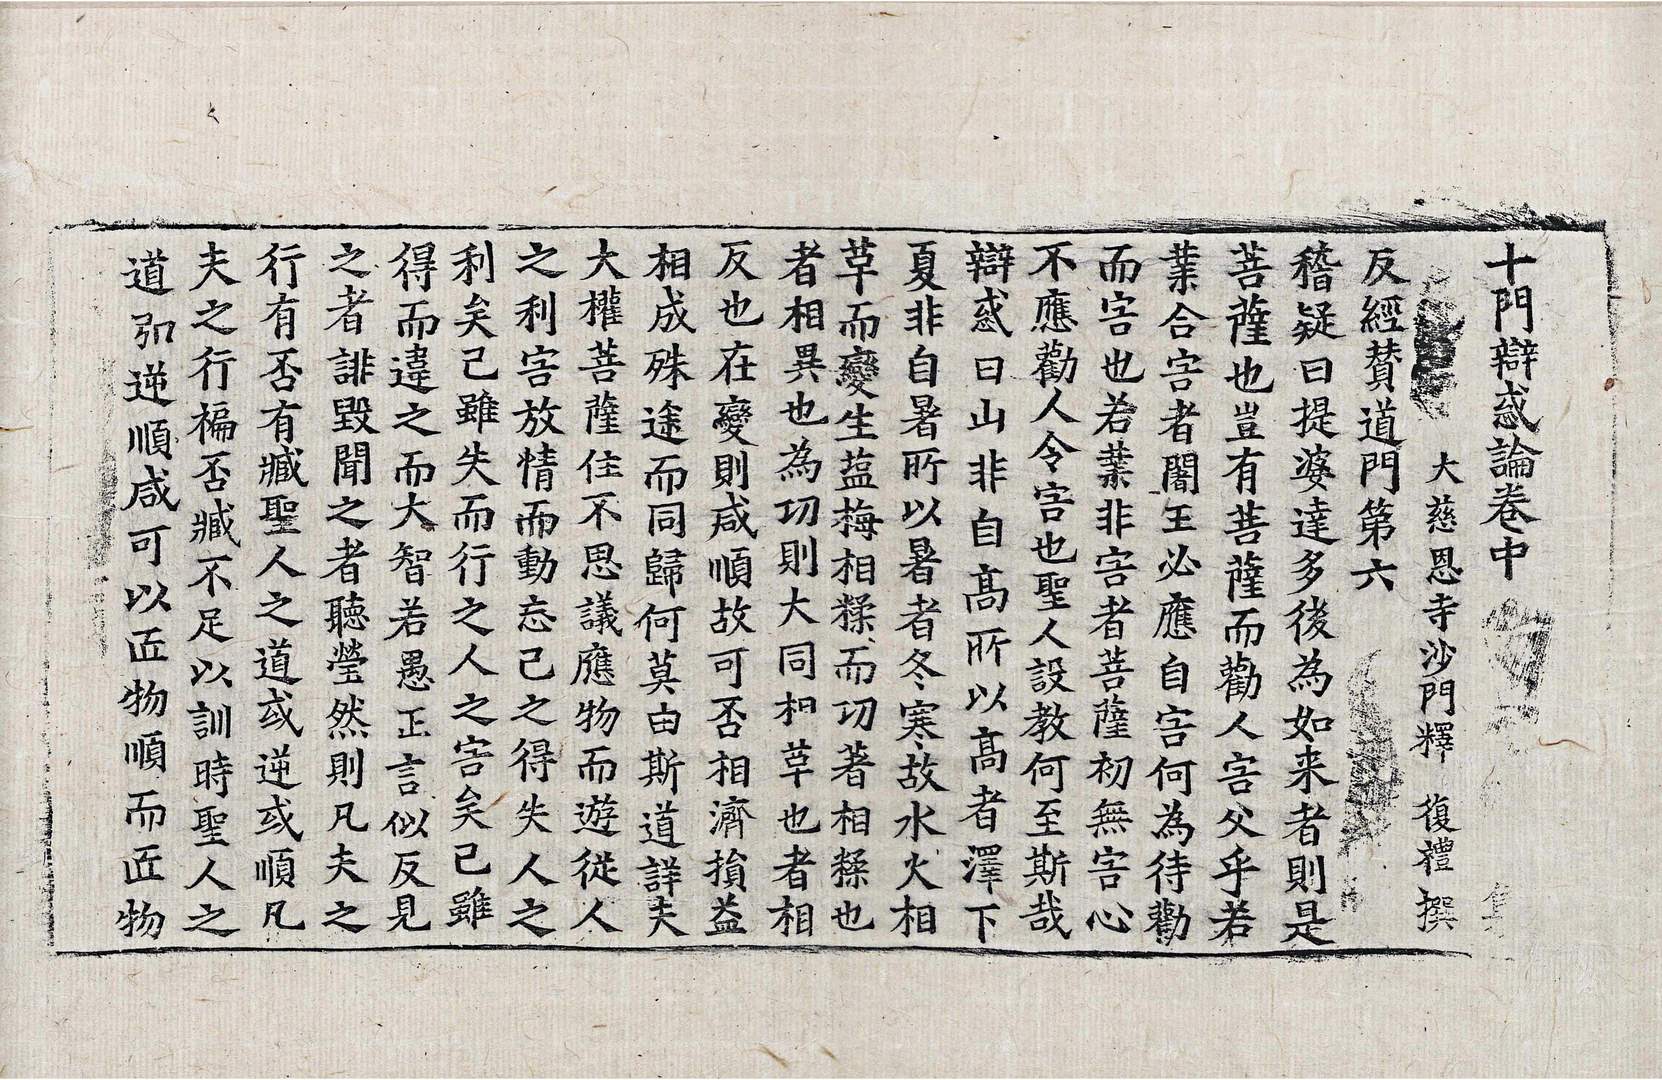 十門辯惑論卷中
大慈恩寺沙門釋 復禮 撰
反經賛道門第六
稽疑曰提婆達多後為如来者則是
菩薩也豈有菩薩而勸人害父乎若
業合害者闍王必應自害何為待勸
而害也若業非害者菩薩初無害心
不應勸人令害也聖人設教何至斯哉
辯惑曰山非自髙所以髙者澤下
夏非自暑所以暑者冬寒故水火相
革而變生塩梅相糅而功著相糅也
者相異也為功則大同相革也者相
反也在變則咸順故可否相濟損益
相成殊途而同歸何莫由斯道詳夫
大權菩薩住不思議應物而遊從人
之利害放情而動忘己之得失人之
利矣己雖失而行之人之害矣己雖
得而違之而大智若愚正言似反見
之者誹毀聞之者聽瑩然則凡夫之
行有否有臧聖人之道或逆或順凡
夫之行褊否臧不足以訓時聖人之
道弘逆順咸可以匠物順而匠物